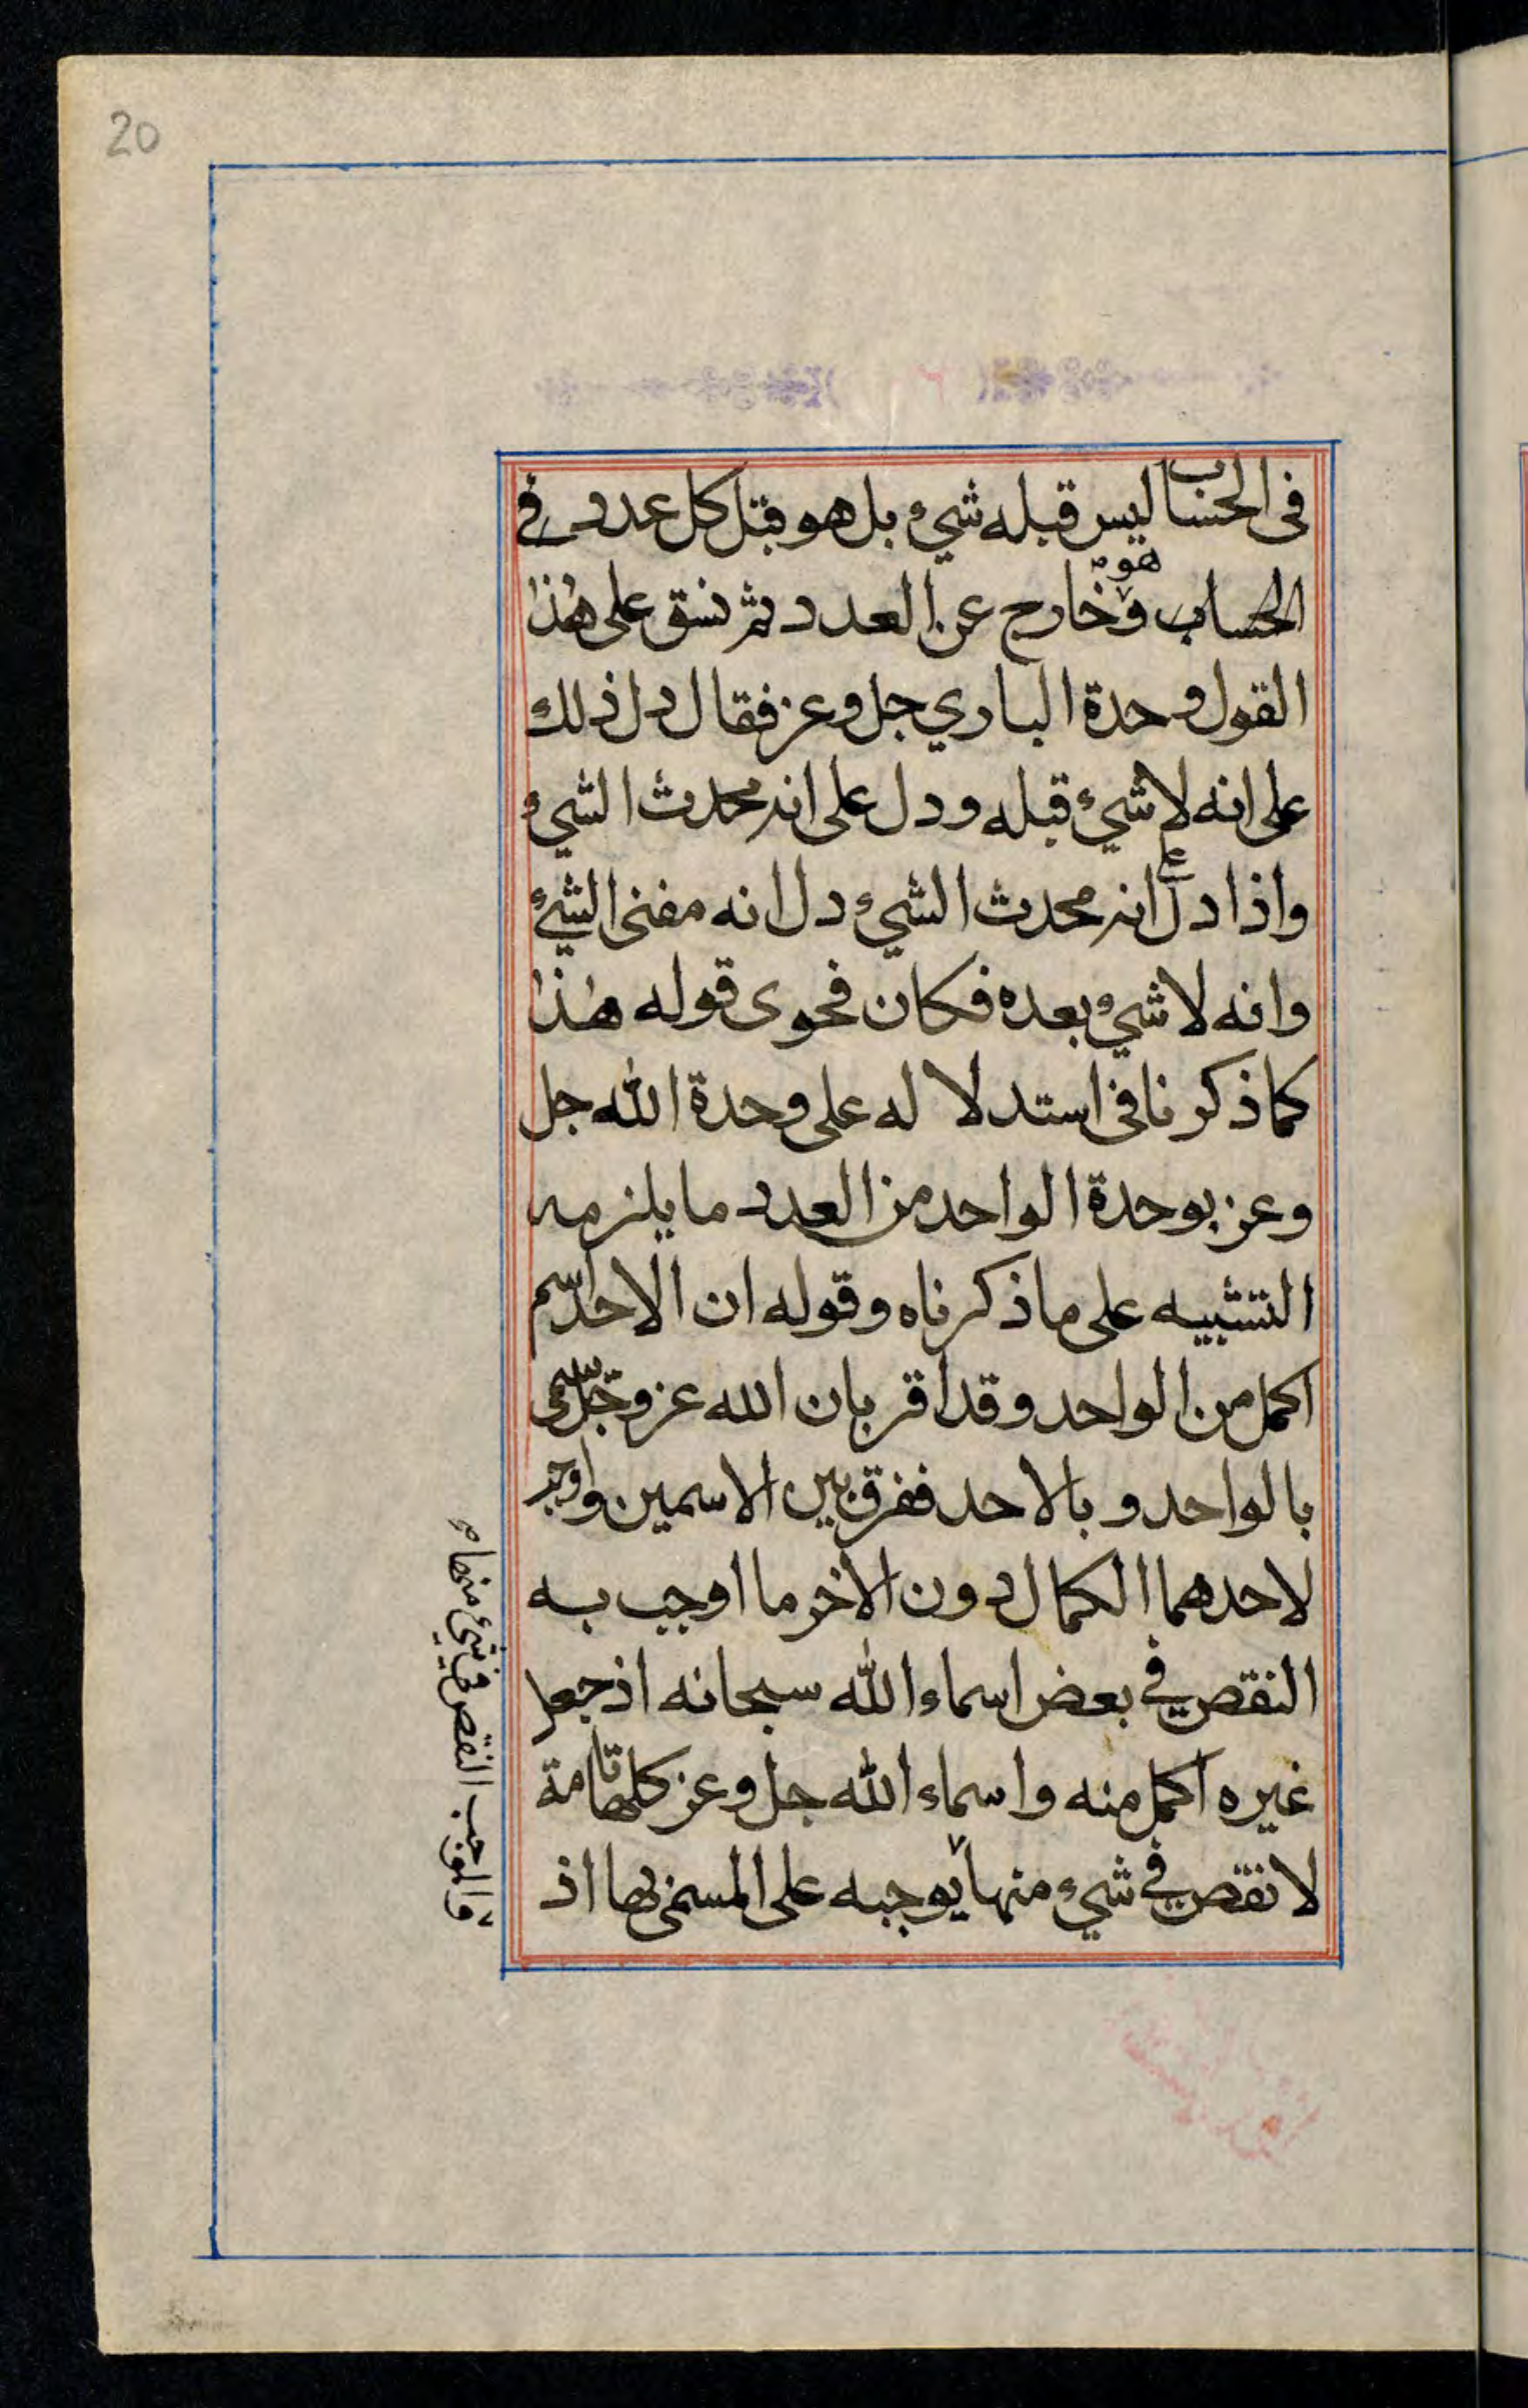 20
فى الحساب ليس قبله شيء بل هو قبل كل عدد في
الحساب وهو خارج عن العدد ثم نسق على هذا
القول وحدة الباري جل وعز فقال دل ذلك
على انه لا شيء قبله ودل على انه محدث الشيء
واذا دل على انه محدث الشيء دل انه مفنى الشيء
وانه لا شيء بعده فكان فحوى قوله هذا
كما ذكرنا فى استدلاله على وحدة الله جل
وعز بوحدة الواحد من العدد ما يلزمه
التشبيه على ما ذكرناه وقوله ان الاحد اسم
اكمل من الواحد وقد اقر بان الله عز وجل سمى
بالواحد وبالاحد ففرق بين الاسمين واوجب
لاحدهما الكمال دون الاخر ما اوجب به
النقص في بعض اسماء الله سبحانه اذ جعل
غيره اكمل منه واسماء الله جل وعز كلها تامة
لا نقص في شيء منها يوجبه على المسمى بها اذ
والموجب النقص في شيء منها